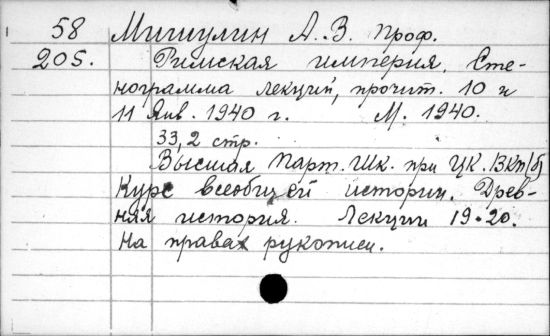 58 Мишулин А.В. проф.
205. Римская империя. Сте-
нограмма лекций, прочит. 10 и
11 Янв. 1940 г. М. 1940.
33,2 стр.
Высшая Парт. Шк. при ЦК. ВКП(б)
Курс всеобщей истории. Древ-
няя история. Лекции 19-20.
На правах рукописи.